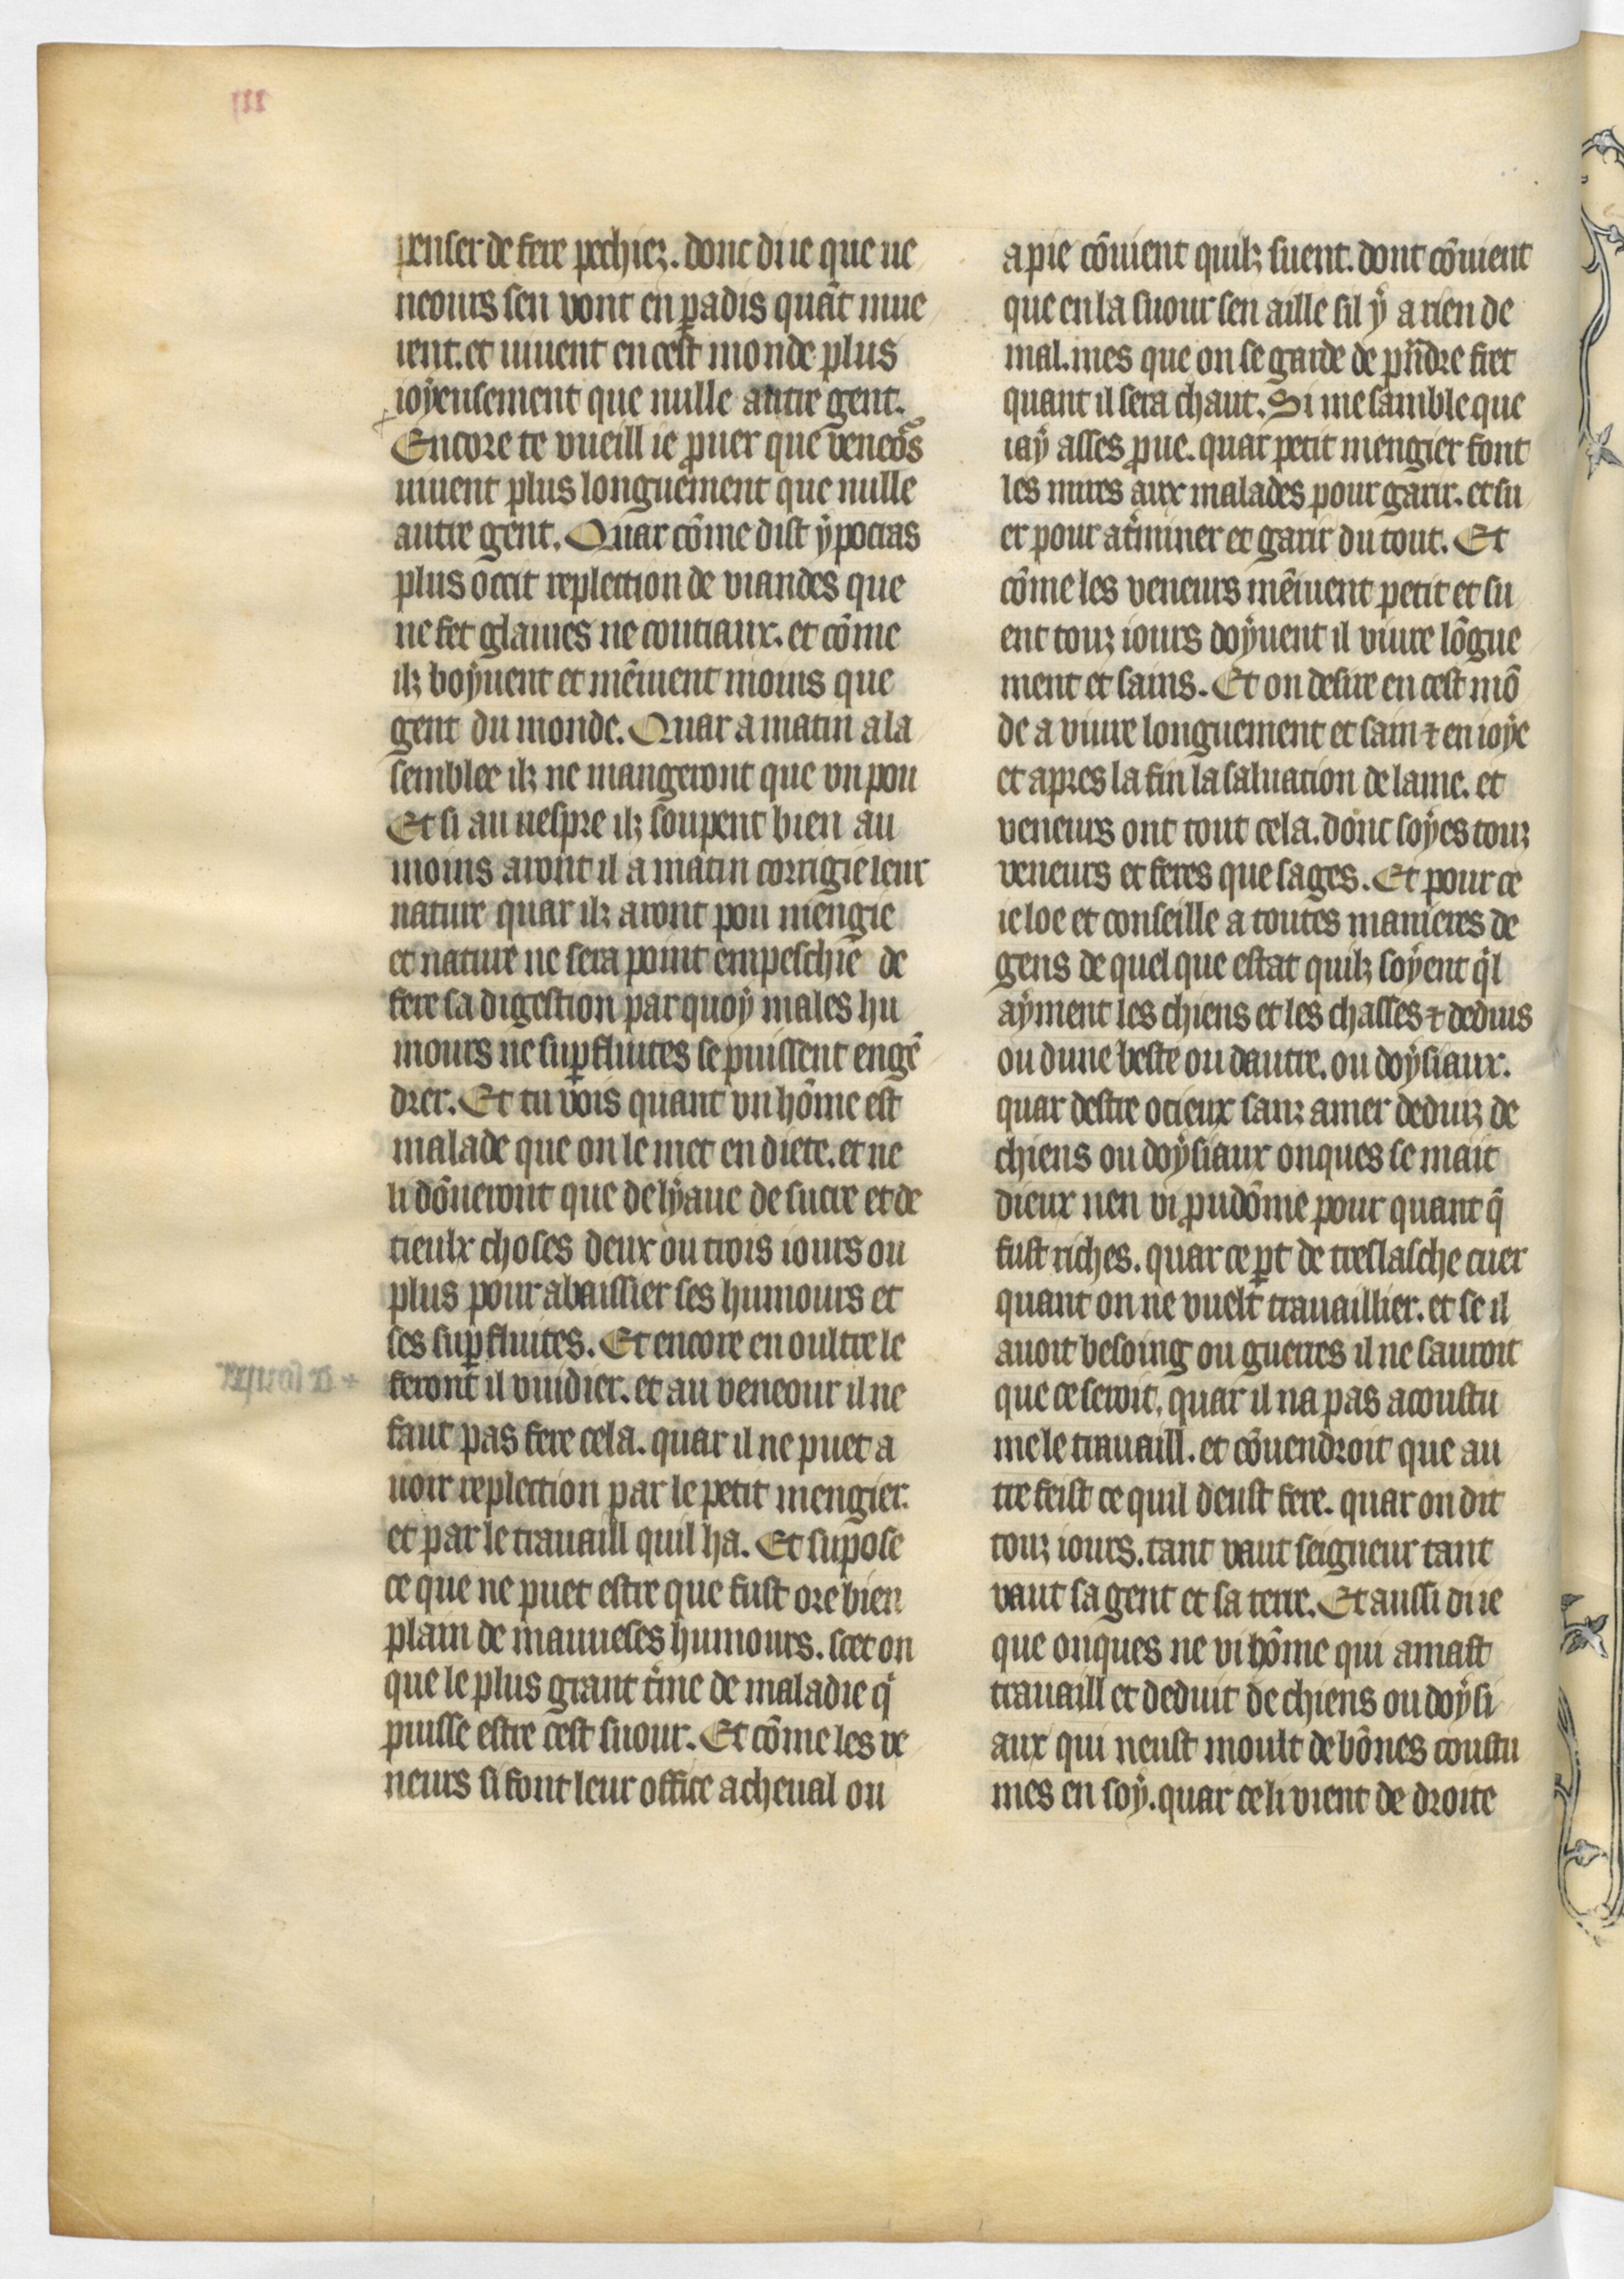 penser de fere pechiez. donc di ie que ue
neours sen vont en ꝑadis quāt mue
rent. et uiuent en cest monde plus
ioÿeusement que nulle autre gent.
Encore te vueill ie ꝓuer que veneōs
uiuent plus longuement que nulle
autre gent. Quar cōme dist ÿpocras
plus occit replection de viandes que
ne fet glaiues ne coutiaux. et cōme
ilz boÿuent et mēiuent moins que
gent du monde. Quar a matin a la
semblee ilz ne mangeront que vn pou
Et si au uespre ilz soupent bien au
moins aront il a matin corrigie leur
nature quar ilz aront pou mengie
et nature ne sera point empeschie de
fere sa digestion par quoÿ males hu
mours ne suꝑfluites se puissent engē
drer. Et tu vois quant vn hōme est
malade que on le met en diete. et ne
li dōneront que de lÿaue de sucre et de
tieulx choses deux ou trois iours ou
plus pour abaissier ses humours et
ses suꝑfluites. Et encore en oultre le
feront il vuidier. et au veneour il ne
faut pas fere cela. quar il ne puet a
uoir replection par le petit mengier.
et par le trauaill quil ha. Et supose
ce que ne puet estre que fust ore bien
plain de mauueses humours. scet on
que le plus grant t̃me de maladie q̄
puisse estre cest suour. Et cōme les ve
neurs si font leur office a cheual ou
a pie cōuient quilz suent. dont cōuient
que en la suour sen aille sil ÿ a rien de
mal. mes que on se garde de pñdre fret
quant il sera chaut. Si me samble que
iaÿ asses ꝓue. quar petit mengier font
les mires aux malades pour garir. et su
er pour at̃miner et garir du tout. Et
cōme les veneurs mēiuent petit et su
ent touz iours doÿuent il viure lōgue
ment et sains. Et on desire en cest mō
de a viure longuement et sain ⁊ en ioÿe
et apres la fin la saluation de lame. et
veneurs ont tout cela. donc soÿes touz
veneurs et feres que sages. Et pour ce
ie loe et conseille a toutes manieres de
gens de quel que estat quilz soÿent q̄l
aÿment les chiens et les chasses ⁊ deduis
ou dune beste ou dautre. ou doÿsiaux.
quar destre ocieux sanz amer deduiz de
chiens ou doÿsiaux onques se mait
dieux nen vi ꝓudōme pour quant q̄
fust riches. quar ce ꝑt de treslasche cuer
quant on ne vuelt trauaillier. et se il
auoit besoing ou guerres il ne sauroit
que ce seroit. quar il na pas acoustu
me le trauaill. et cōuendroit que au
tre feist ce quil deust fere. quar on dit
touz iours. tant vaut seigneur tant
vaut sa gent et sa terre. Et aussi di ie
que onques ne vi hōme qui amast
trauaill et deduit de chiens ou doÿsi
aux qui neust moult de bōnes coustu
mes en soÿ. quar ce li vient de droite